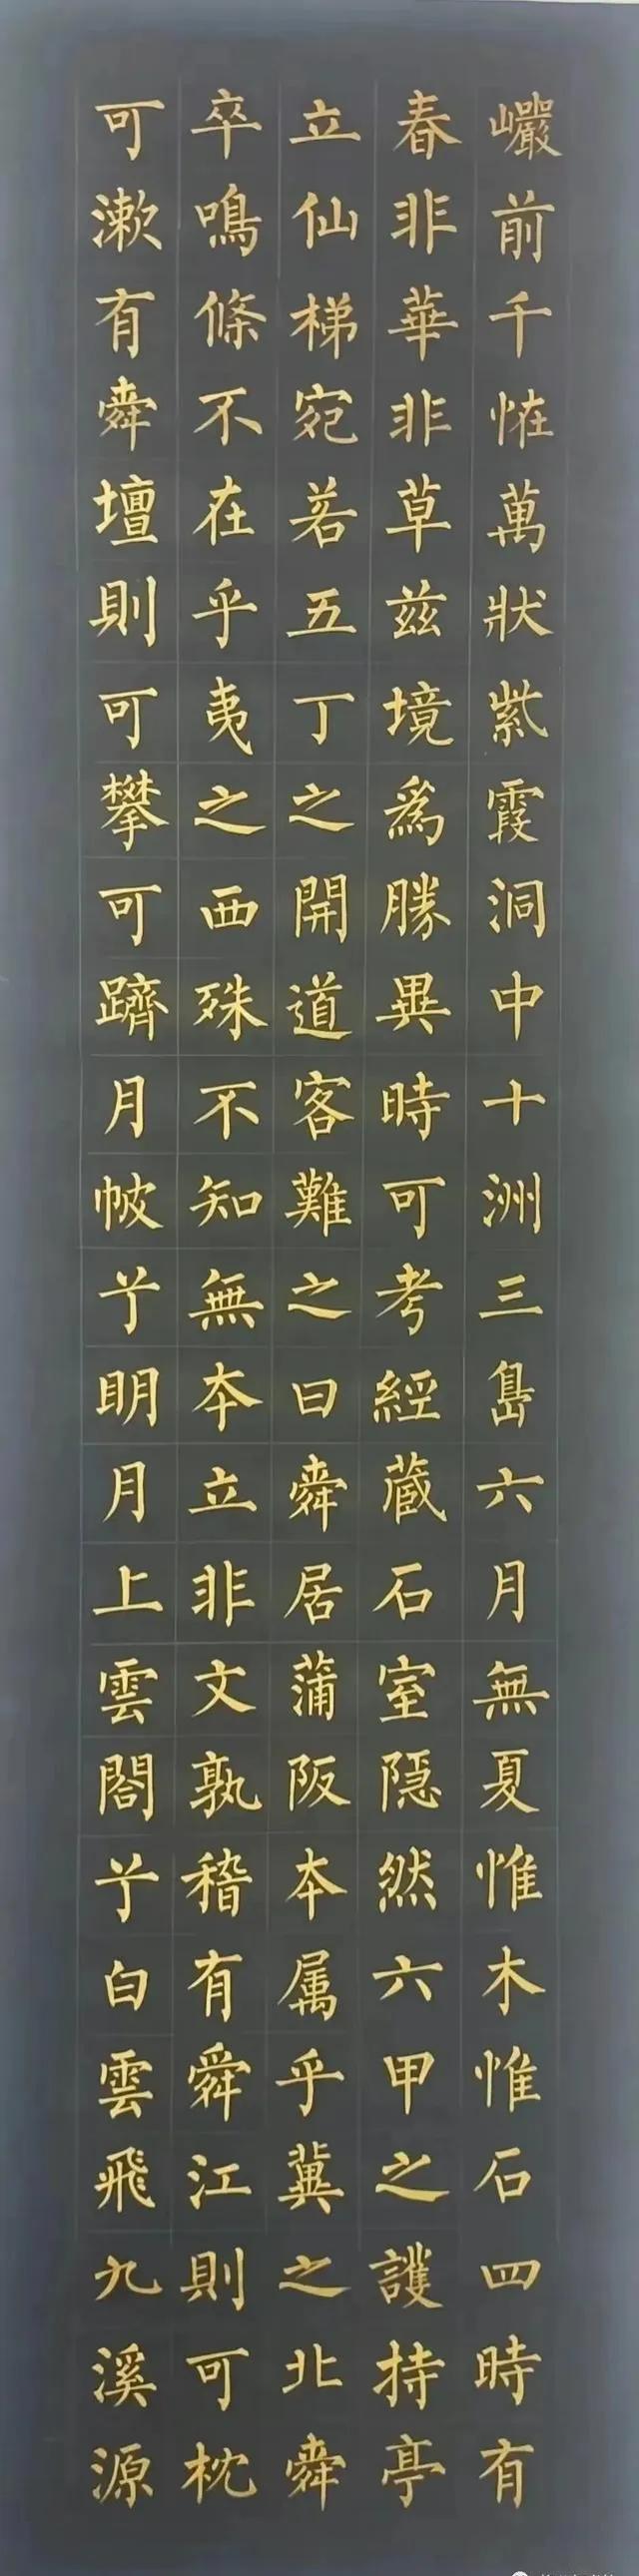 巖前千怪萬狀紫霞洞中十洲三島六月無夏惟木惟石四時有
春非華非草兹境爲勝異時可考經蔵石室隠然六甲之護持亭
立仙梯宛若五丁之開道客難之曰舜居蒲阪本属乎冀之北舜
卒鳴條不在乎夷之西殊不知無本立非文孰稽有舜江則可枕
可漱有舜壇則可攀可躋月帔兮明月上雲閤兮白雲飛九溪源